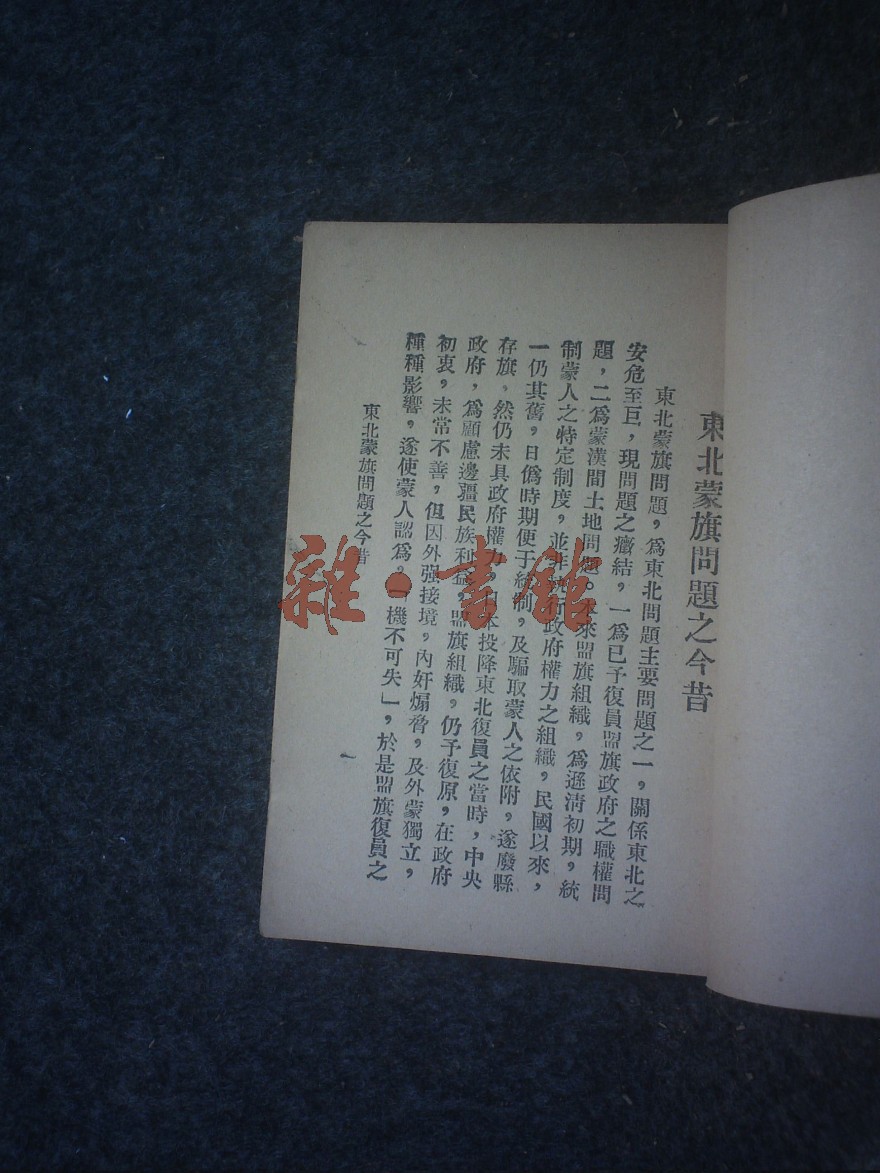 東北蒙旗問題之今昔
東北蒙旗問題，為東北問題主要問題之一，關係東北之
安危至巨，現問題之癥結，一為已予復員盟旗政府之職權問
題，二為蒙漢間土地問題。本來盟旗組織，為遜清初期，統
制蒙人之特定制度，並非執行政府權力之組織，民國以來，
一仍其舊，日偽時期便于統制，及騙取蒙人之依附，遂廢縣
存旗，然仍未具政府權力，日本投降東北復員之當時，中央
政府，為顧慮邊疆民族利益，盟旗組織，仍予復原，在政府
初衷，未常不善，但因外强接境，內奸煽脅，及外蒙獨立，
種種影響，遂使蒙人認為，「機不可失」，於是盟旗復員之
東北蒙旗問題之今昔
一
雜·書館